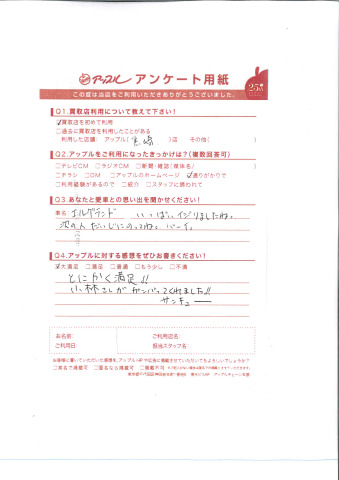 アップル アンケート用紙
この度は当店をご利用いただきありがとうございました。
25周年
Q1.買取店利用について教えて下さい!
☑買取店を初めて利用
□過去に買取店を利用したことがある
利用した店舗: アップル( 宮崎 )店 その他( )
Q2.アップルをご利用になったきっかけは?(複数回答可)
□テレビCM □ラジオCM □新聞・雑誌(媒体名/ )
□チラシ □DM □アップルのホームページ ☑通りがかりで
□利用経験があるので □紹介 □スタッフに誘われて
Q3.あなたと愛車との思い出を聞かせください!
車名: エルグランド いっぱい、イジりましたね。
次の人 だいじにのってね。バーイ。
Q4.アップルに対する感想をぜひお書きください!
☑大満足 □満足 □普通 □もう少し □不満
とにかく満足!!
小林さんが ガンバってくれました!!
サンキュー
お名前: ご利用店名:
ご利用日: 担当スタッフ名:
お客様に書いていただいた感想を、アップルHPや広告に掲載させていただいてもよろしいでしょうか?
□実名で掲載可 □匿名なら掲載可 □掲載不可